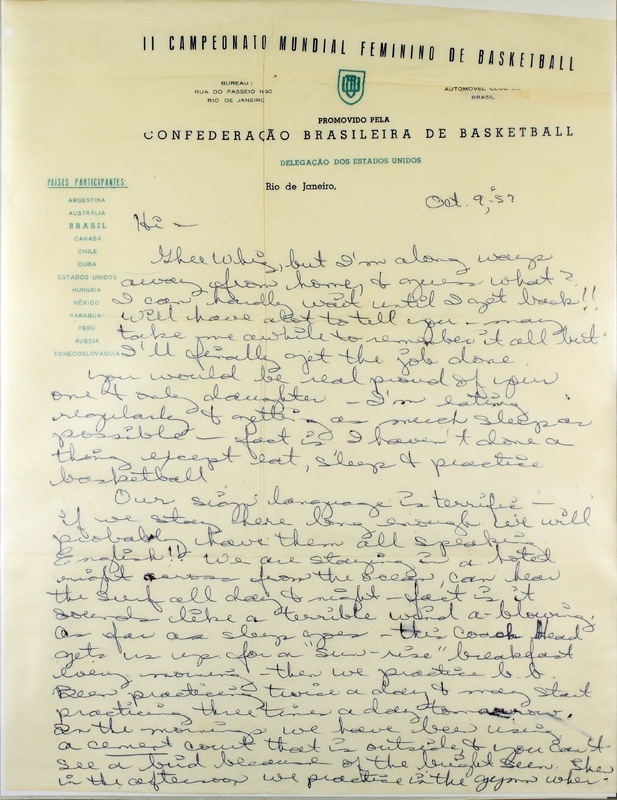 II CAMPEONATO MUNDIAL FEMININO DE BASKETBALL
BUREAU:
RUA DO PASSEIO N.90
RIO DE JANEIRO
AUTOMOVEL CLUB DO
BRASIL
PROMOVIDO PELA
CONFEDERAÇÃO BRASILEIRA DE BASKETBALL
DELEGAÇÃO DOS ESTADOS UNIDOS
PAÍSES PARTICIPANTES:
ARGENTINA
AUSTRÁLIA
BRASIL
CANADÁ
CHILE
CUBA
ESTADOS UNIDOS
HUNGRIA
MÉXICO
PARAGUAI
PERÚ
RUSSIA
TCHECOSLOVAQUIA
Rio de Janeiro,
Oct. 9, '57
Hi -
Ghee Whiz, but I'm along ways
away from home, & guess what?
I can hardly wait until I get back!!
Will have alot to tell you - may
take me awhile to remember it all but
I'll finally get the job done.
You would be real proud of your
one & only daughter - I'm eating
regularly & getting as much sleep as
possible - fact is I haven't done a
thing except eat, sleep & practice
basketball
Our sign language is terrific -
if we stay here long enough we will
probably have them all speaking
English!! We are staying in a hotel
right across from the ocean, can hear
the surf all day & night - fact is it
sounds like a terrible wind a-blowing.
As far as sleep goes - the coach Head
gets us up for a "sun-rise" breakfast
every morning - then we practice b.b.
Been practicing twice a day & may start
practicing three times a day tomorrow.
In the mornings we have been using
a cement court that is outside, & you can't
see a bird because of the bright seen. Then
in the afternoon we practice in the gymn wher-